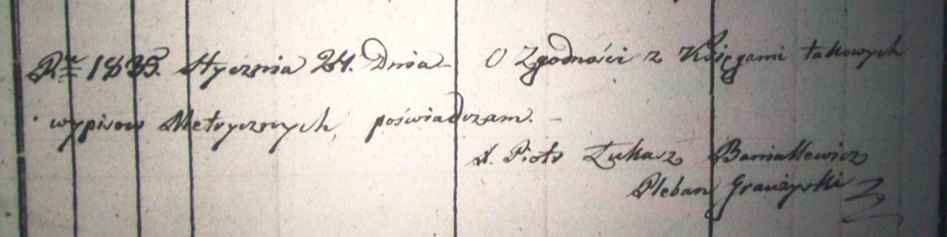 Rku 1835. Stycznia 24. Dnia O Zgodności z Księgami takowych
wypisow Metrycznych, poświadczam.
X. Piotr Łukasz Baniallewicz
Pleban Graużyski